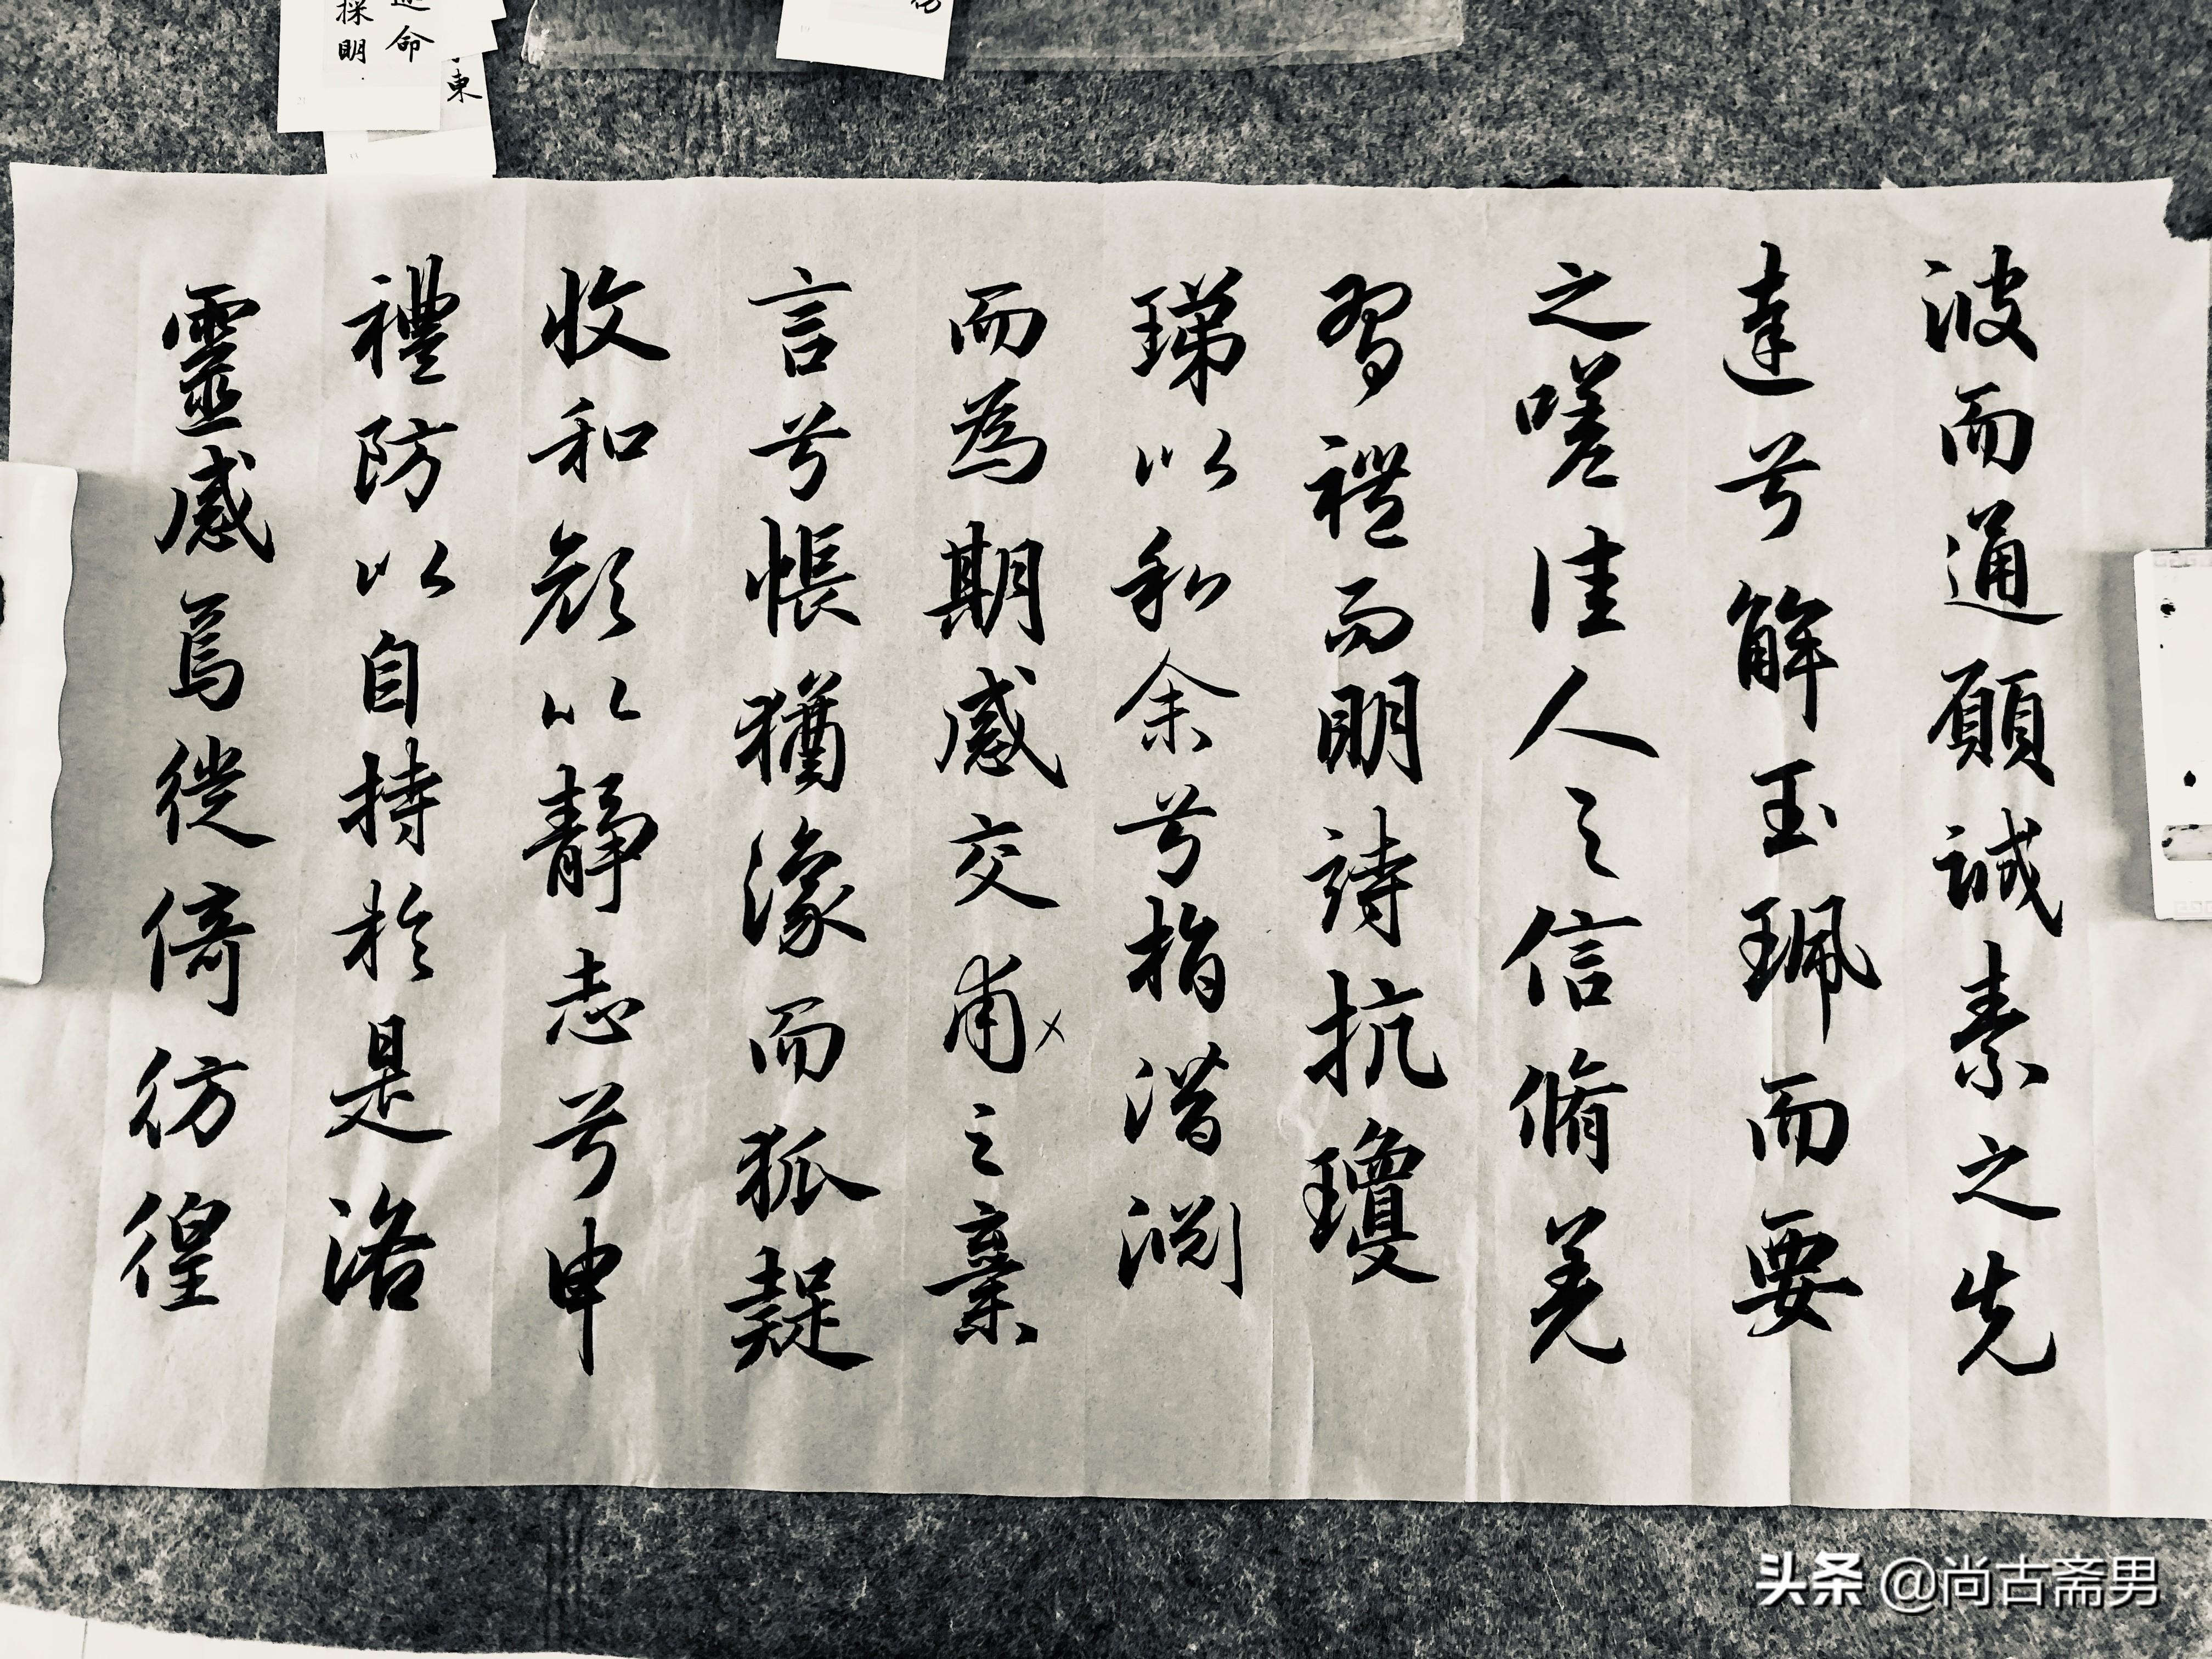 波而通願誠素之先
達兮解玉珮而要
之嗟佳人之信脩羌
習禮而明詩抗瓊
珶以和余兮指潛淵
而為期感交甫之棄
言兮悵猶濠而狐疑
收和顏以靜志兮申
禮防以自持於是洛
靈感焉徙倚彷徨
採明
命
東
头条 @尚古斋男